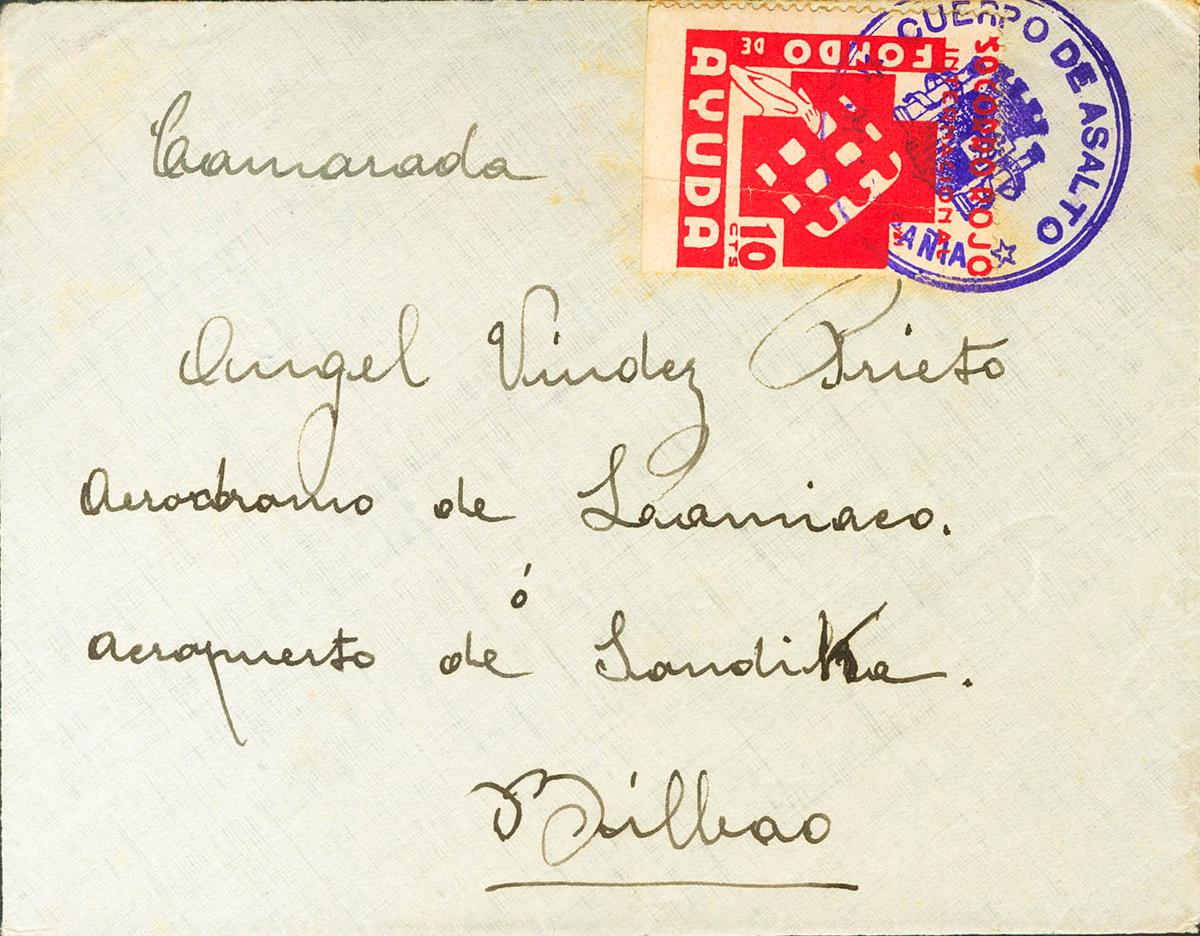 CUERPO DE ASALTO
AÑIA
SOCORRO ROJO
INTERNACIONAL
FONDO DE
AYUDA
10
CTS
Camarada
Angel Vindez Prieto
Aerodromo de Lamiaco.
ó
Aeropuerto de Sondika.
Bilbao